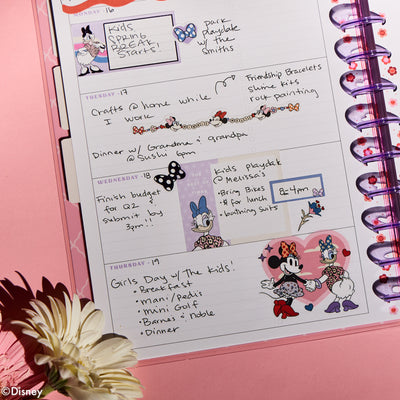 MONDAY · 16
Kids
SPRING
BREAK
Starts!
park
playdate
w/ the
Smiths
TUESDAY · 17
Crafts @ home while
I work
Friendship Bracelets
slime kits
rock painting
Dinner w/ Grandma & grandpa
@ Sushi 6pm
WEDNESDAY · 18
Finish budget
for Q2 &
submit by
3pm!!
Kids playdate
@ Melissa's
• Bring Bikes
• $ for lunch
• bathing suits
THURSDAY · 19
Girls Day w/ The kids!
• Breakfast
• Mani/Pedis
• mini Golf
• Barnes & Noble
• Dinner
©Disney